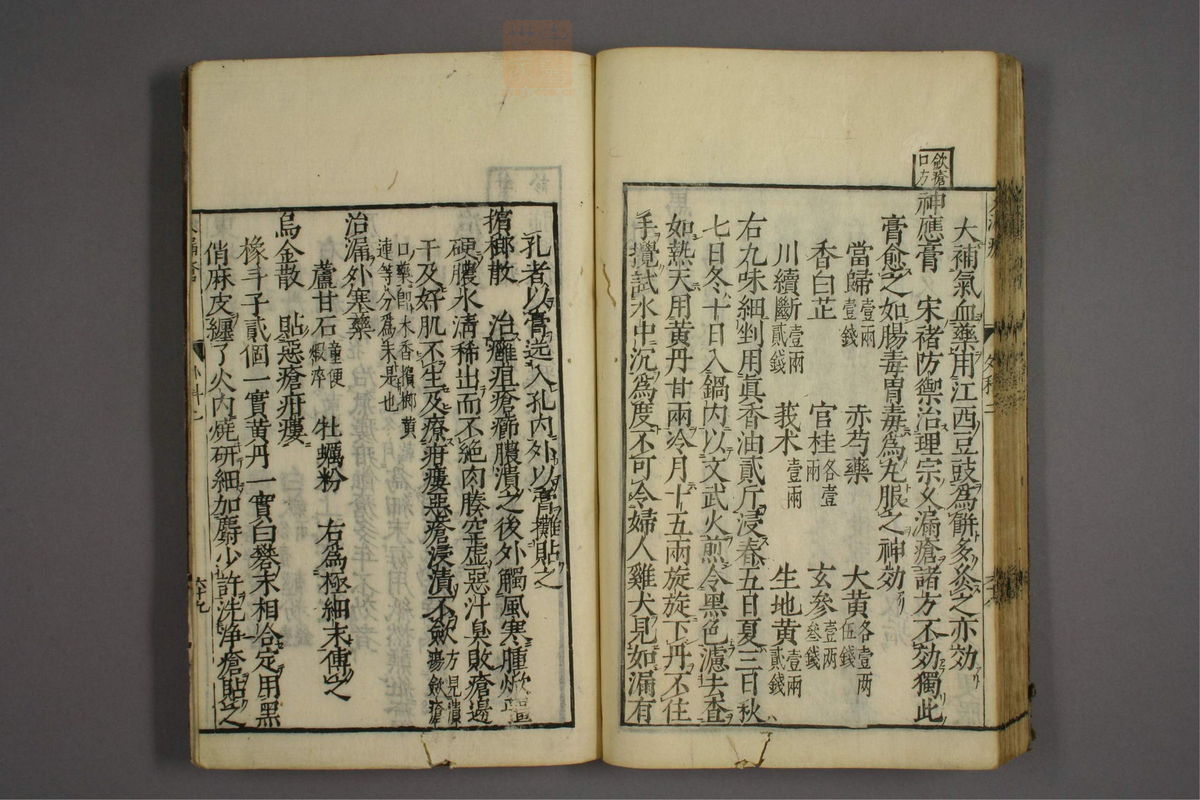 大補氣血藥用江西豆豉為餅多灸之亦効
歛瘡口方
神應膏　宋禇防禦治理宗女漏瘡諸方不効獨此
膏愈之如腸毒胃毒為丸服之神効
當歸壹兩壹錢　赤芍藥　大黃各壹兩伍錢
香白芷　官桂各壹兩　玄參壹兩叄錢
川續斷壹兩貳錢　莪朮壹兩　生地黃壹兩貳錢
右九味細剉用眞香油貳斤浸春五日夏三日秋
七日冬十日入鍋內以文武火煎令黑色濾去查
如熱天用黃丹廿兩冷月十五兩旋旋下丹不住
手攪試水中沉為度不可令婦人雞犬見如漏有
孔者以膏送入孔內外以膏攤貼之
檳榔散　治癰疽瘡癤膿潰之後外觸風寒腫焮
硬膿水淸稀出而不絕肉腠空虛惡汁臭敗瘡邊
干及好肌不生及療疳瘻惡瘡浸漬不歛方見潰瘍歛瘡
口藥卽木香檳榔黃連等分為末是也
治漏外塞藥
蘆甘石童便煅淬　牡蠣粉　右為極細末傅之
烏金散　貼惡瘡疳瘻
橡斗子貳個一實黃丹一實白礬末相合定用黑
俏麻皮纏了火內燒研細加麝少許洗淨瘡貼之